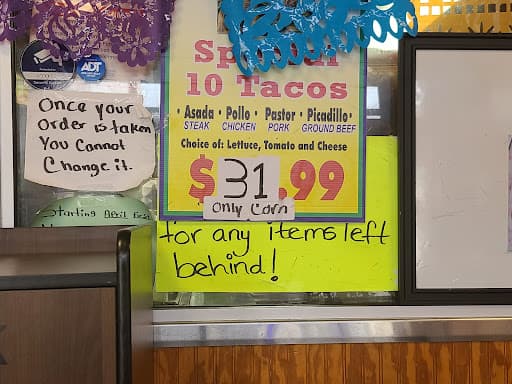 ADT
Once your
Order is taken
You Cannot
Change it.
Starting April First
10 Tacos
· Asada · Pollo · Pastor · Picadillo ·
STEAK CHICKEN PORK GROUND BEEF
Choice of: Lettuce, Tomato and Cheese
$31.99
Only Corn
for any items left
behind!